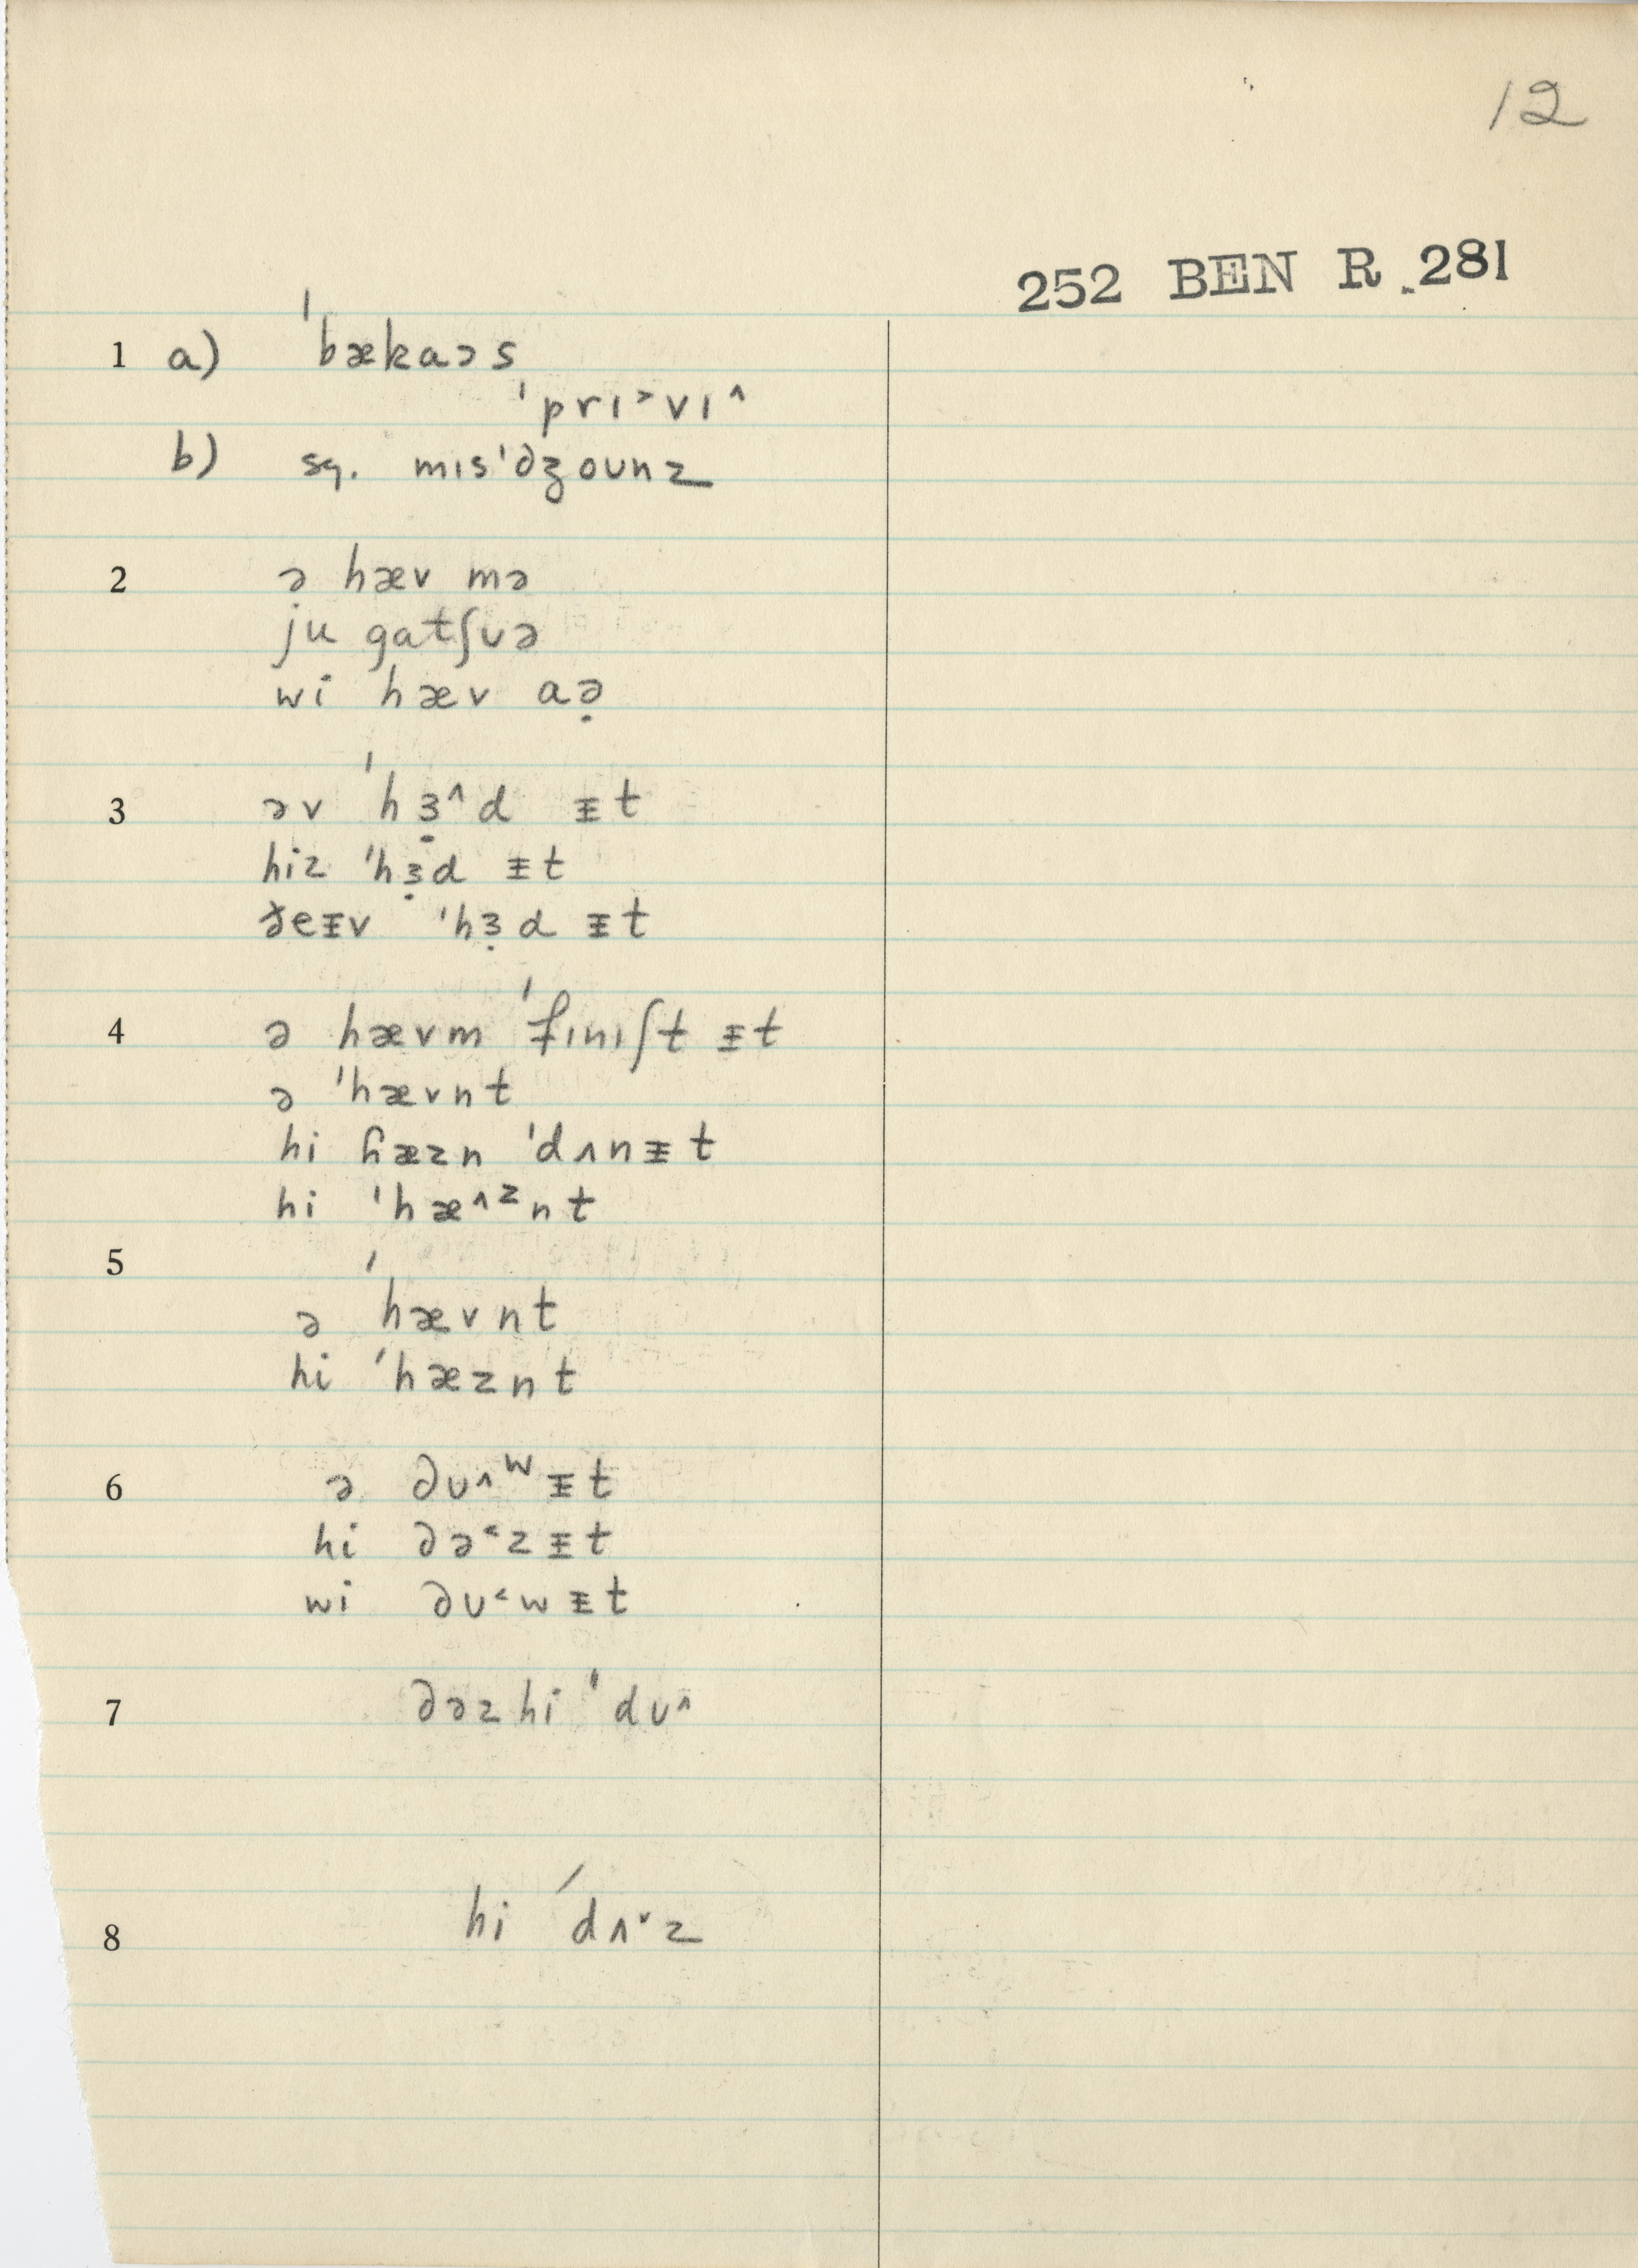 12
252 BEN R 281
1 a) ˈbækaɔs
ˈprɪ˃vɪ˄
b) sq. mɪsˈdʒoʊnz
2 ə hæv mə
ju gatʃʊə
wi hæv aə̣
3 əv ˈhɜ̣˄d ᵻt
hiz ˈhɜ̣d ᵻt
ðeᵻv ˈhɜ̣d ᵻt
4 ə hævm ˈfɪnɪʃt ᵻt
ə ˈhævnt
hi ɦæzn ˈdʌnᵻt
hi ˈhæ˄ᶻnt
5
ə ˈhævnt
hi ˈhæznt
6 ə ∂ʊ˄ʷᵻt
hi ∂ə˂zᵻt
wi ∂ʊ˂wᵻt
7 ∂əzhi ˈdʊ˄
8 hi ˈdʌ˅z